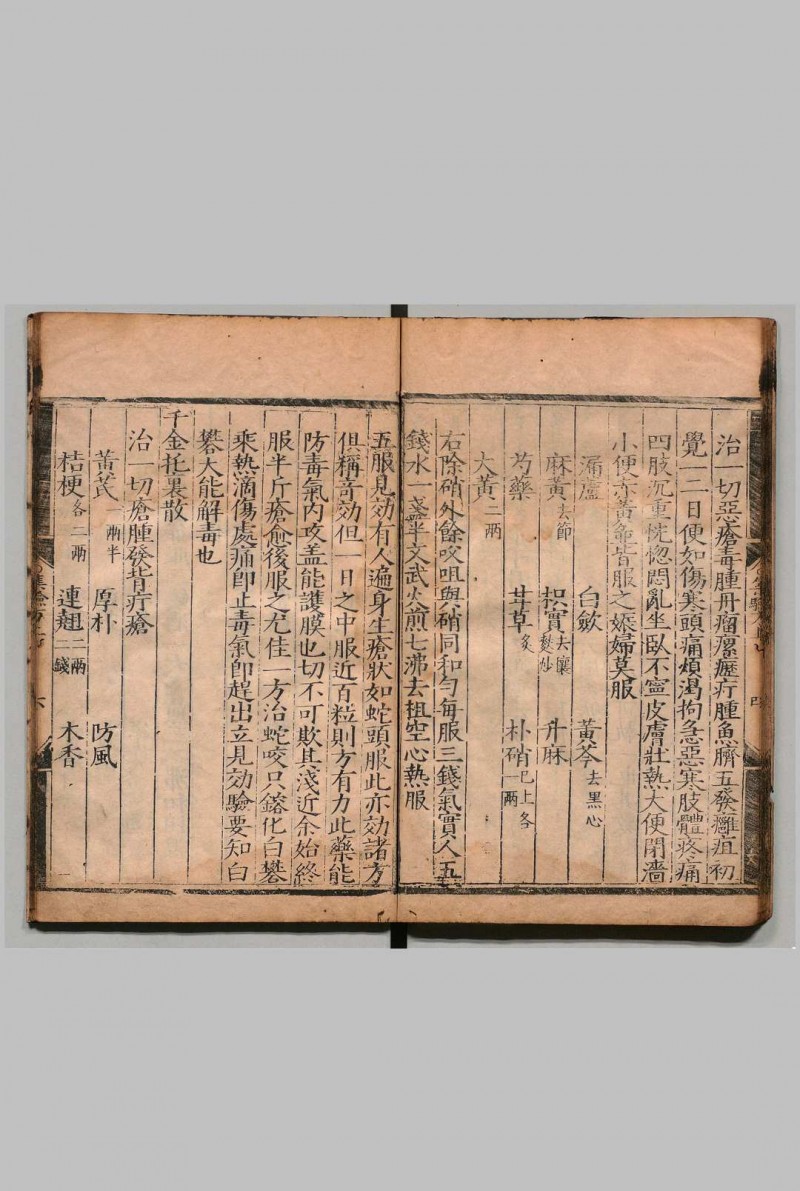 治一切惡瘡毒腫丹瘤瘰癧疔腫魚臍五發癰疽初
覺一二日便如傷寒頭痛煩渴拘急惡寒肢體疼痛
四肢沉重恍惚悶亂坐臥不寧皮膚壯熱大便閉澁
小便赤黃並皆服之娠婦莫服
漏蘆 白斂 黃芩去黑心
麻黃去節 枳實去穰麩炒 升麻
芍藥 甘草炙 朴硝已上各一兩
大黃二兩
右除硝外餘㕮咀與硝同和勻每服三錢氣實人五
錢水一盞半文武火煎七沸去柤空心熱服
五服見効有人遍身生瘡狀如蛇頭服此亦効諸方
俱稱奇効但一日之中服近百粒則方有力此藥能
防毒氣內攻盖能護膜也切不可欺其淺近余始終
服半斤瘡愈後服之尤佳一方治蛇咬只鎔化白礬
乘熱滴傷處痛卽止毒氣卽趕出立見効驗要知白
礬大能解毒也
千金托裏散
治一切瘡腫發背疔瘡
黃芪一兩半 厚朴 防風
桔梗各二兩 連翹二兩二錢 木香
六
四